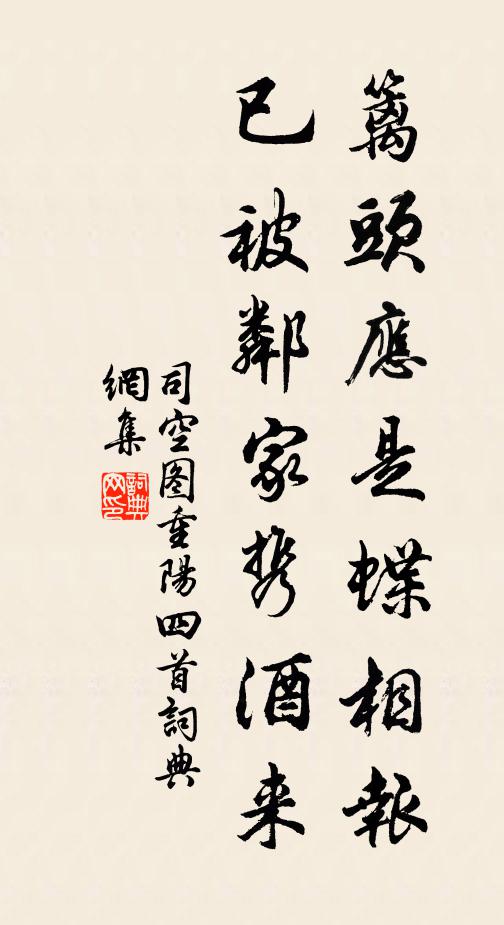 籬頭應是蝶相報
已被鄰家携酒来
司空图重陽四首詞典
網集
詞典
网印